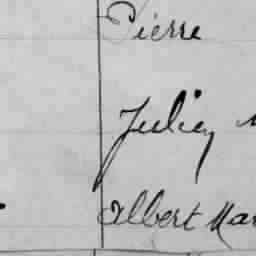 Pierre
Julien
Albert Mar